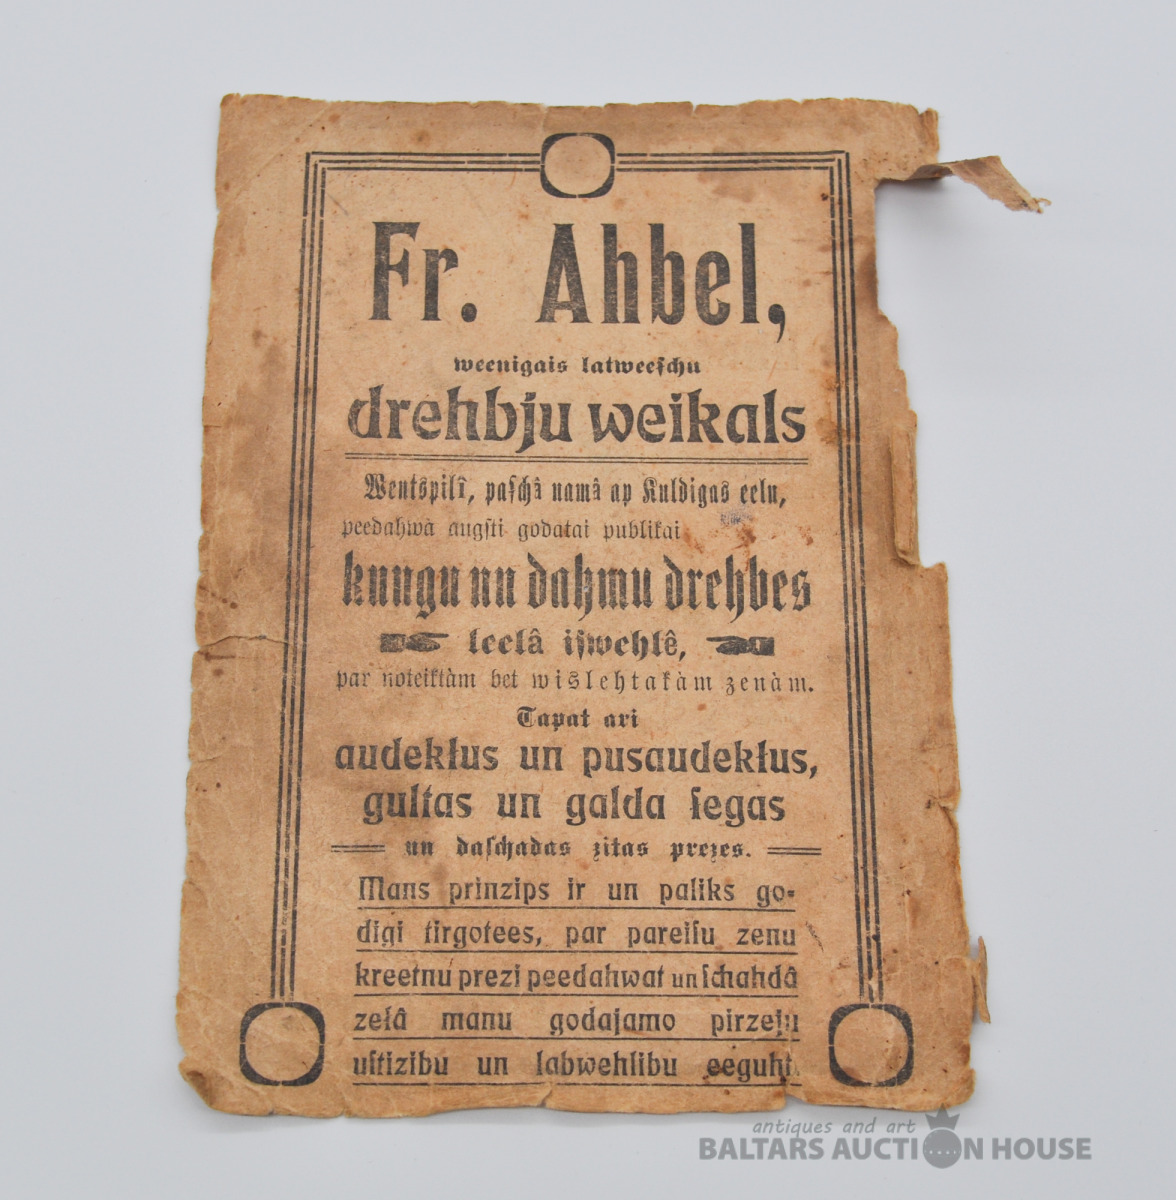 Fr. Ahbel,
weenigais latweeſchu
drehbju weikals
Wentspilî, paſchâ namâ ap Kuldigas eelu,
peedahwà augſti godatai publikai
kungu un dahmu drehbes
leelâ iſwehlê,
par noteiktàm bet wislehtakàm zenàm.
Tapat ari
audeklus un pusaudeklus,
gultas un galda ſegas
un daſchadas zitas prezes.
Mans prinzips ir un paliks go-
digi tirgotees, par pareiſu zenu
kreetnu prezi peedahwat un ſchahdâ
zelâ manu godajamo pirzeju
uſtizibu un labwehlibu eeguht.
antiques and art
BALTARS AUCTION HOUSE